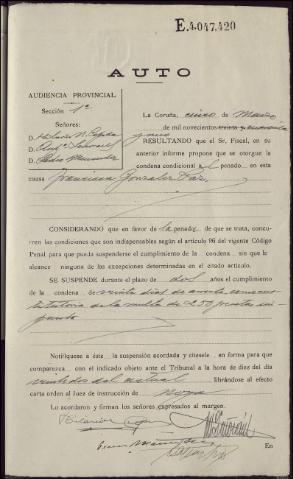 E.4.047.420
AUTO
AUDIENCIA PROVINCIAL
Sección 1ª
Señores:
D.
D.
D. Pedro
La Coruña, cinco de Marzo
de mil novecientos treinta y cuarenta
y uno
RESULTANDO que el Sr. Fiscal, en su
anterior informe propone que se otorgue la
condena condicional al penado en esta
causa Francisca Gonzalez Paz.
CONSIDERANDO que en favor de la penada de que se trata, concu-
rren las condiciones que son indispensables según el artículo 96 del vigente Código
Penal para que pueda suspenderse el cumplimiento de la condena sin que le
alcance ninguno de las excepciones determinadas en el citado artículo.
SE SUSPENDE durante el plazo de dos años el cumplimiento
de la condena de veinte dias de arresto como sus-
titutoria de la multa de 250 pesetas im-
puesta
Notifíquese á éste la suspensión acordada y cítesele en forma para que
comparezca con el indicado objeto ante el Tribunal a la hora de diez del día
veintidos del actual librándose al efecto
carta orden al Juez de instrucción de Noya
Lo acordaron y firman los señores expresados al margen.
En